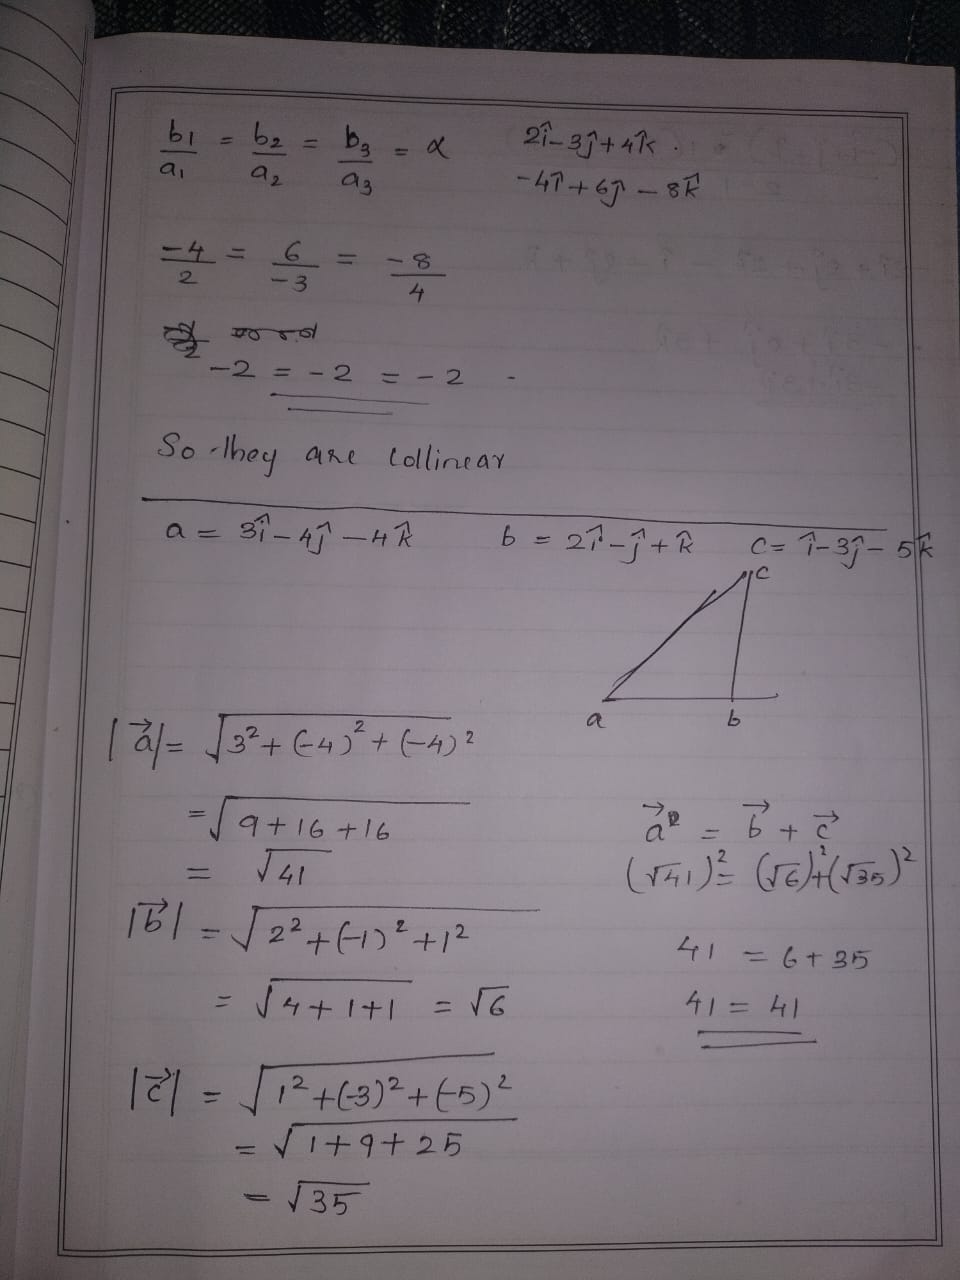 b1/a1 = b2/a2 = b3/a3 = α
2î - 3ĵ + 4k̂ .
-4î + 6ĵ - 8k̂
-4/2 = 6/-3 = -8/4
-2 = -2 = -2 .
So they are collinear
a = 3î - 4ĵ - 4k̂ b = 2î - ĵ + k̂ c = î - 3ĵ - 5k̂
c
a b
|a⃗| = √3² + (-4)² + (-4)²
= √9 + 16 + 16
= √41
|b⃗| = √2² + (-1)² + 1²
= √4 + 1 + 1 = √6
|c⃗| = √1² + (-3)² + (-5)²
= √1 + 9 + 25
= √35
a⃗² = b⃗ + c⃗
(√41)² = (√6)² + (√35)²
41 = 6 + 35
41 = 41